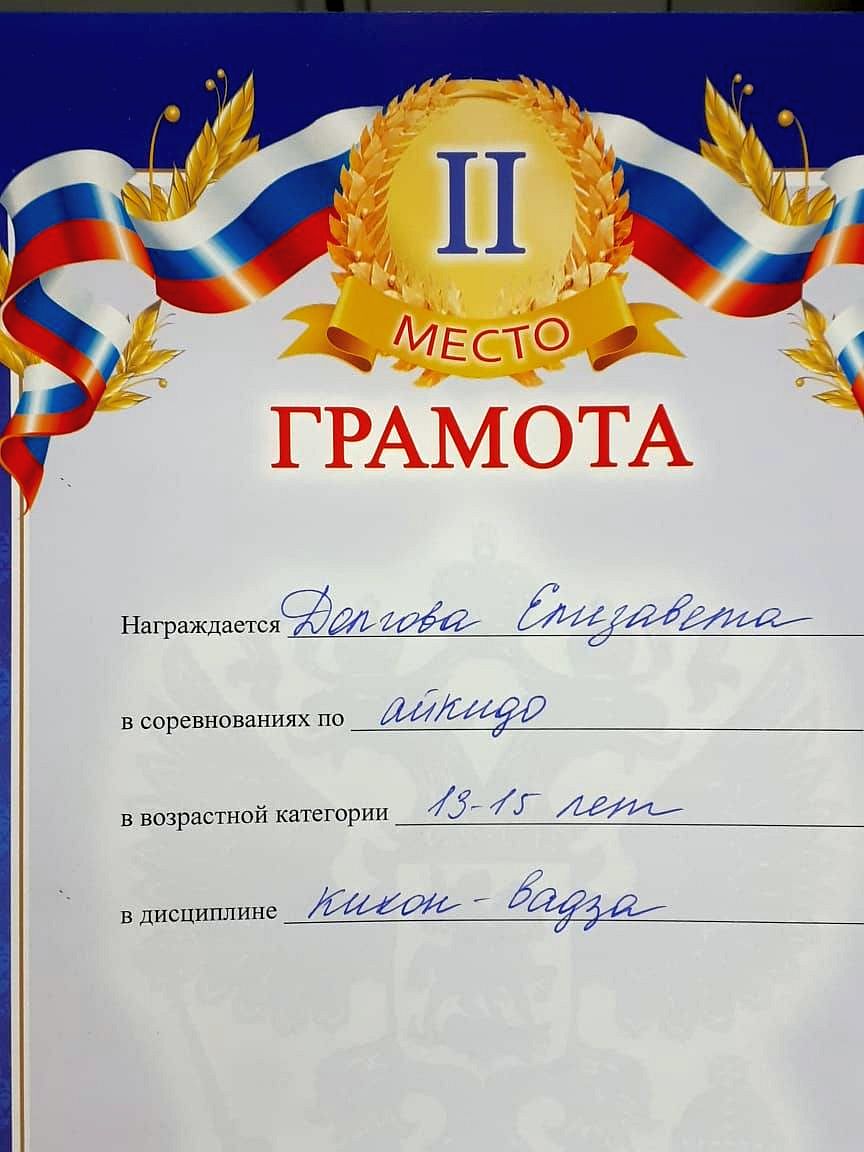 II
МЕСТО
ГРАМОТА
Награждается Долгова Елизавета
в соревнованиях по айкидо
в возрастной категории 13-15 лет
в дисциплине кихон - вадза